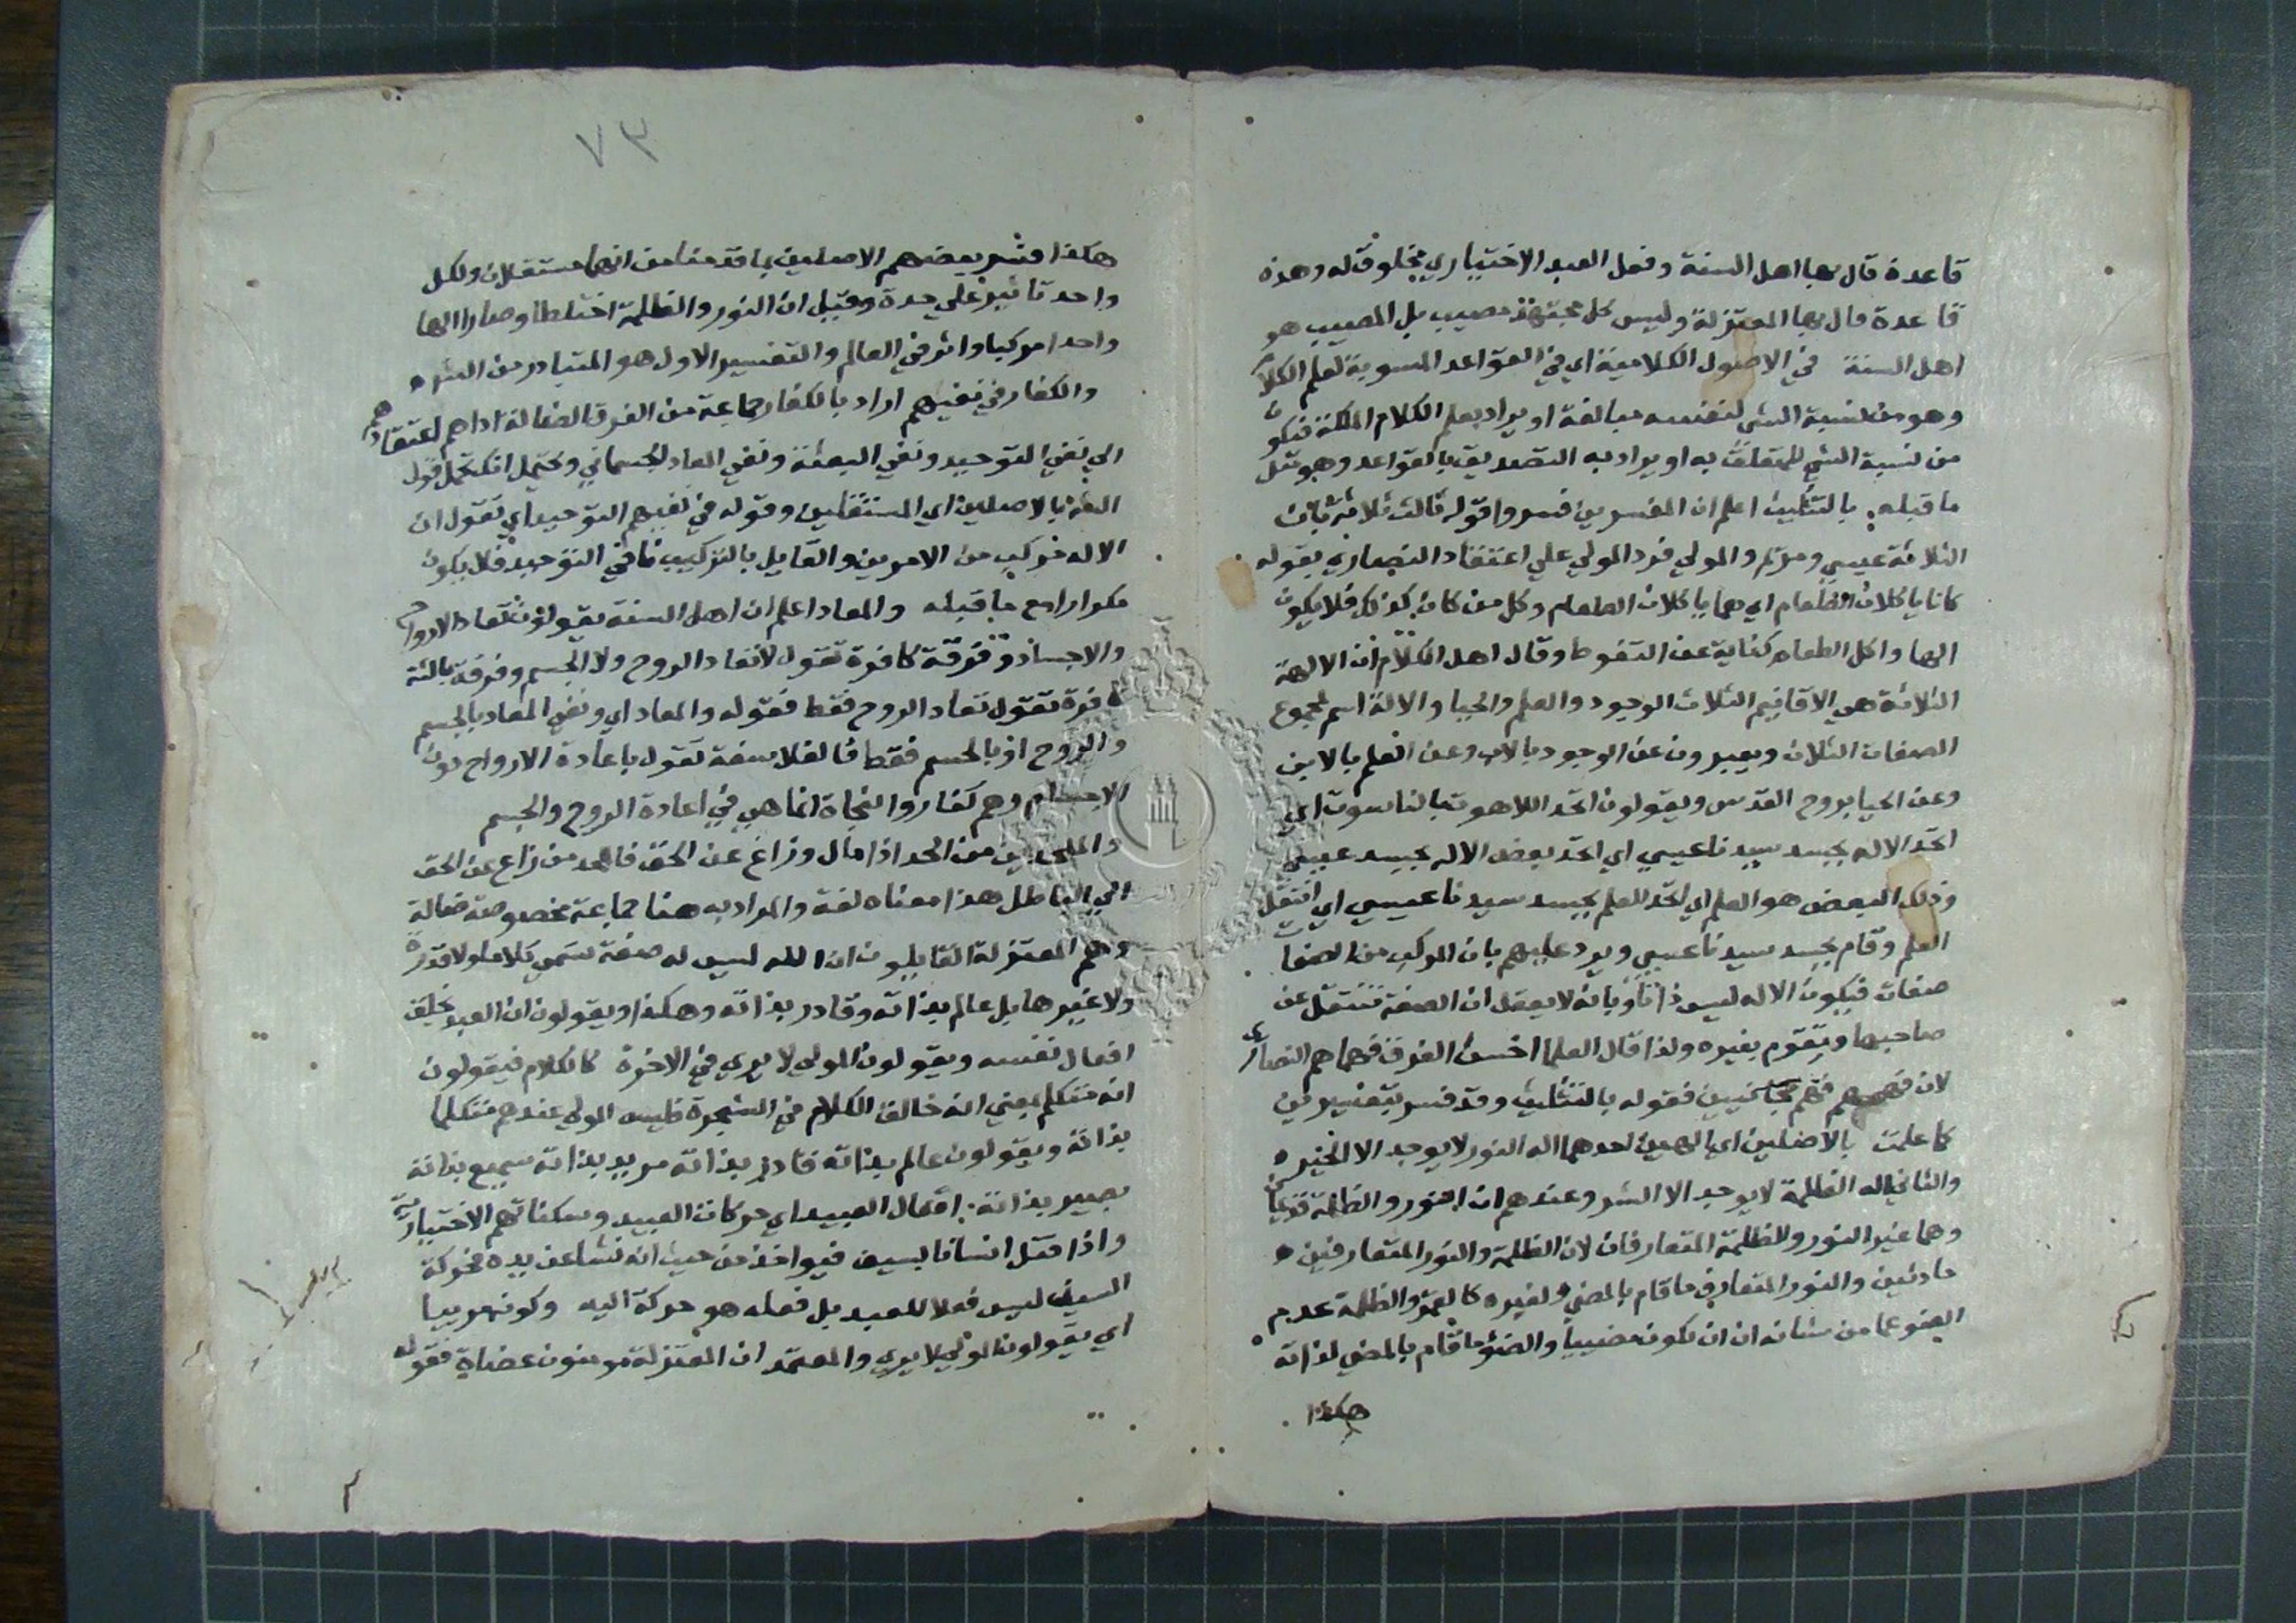 قاعدة قال بها اهل السنة وفعل العبد الاختياري مخلوق له وهذه
قاعدة قال بها المعتزلة وليس كل مجتهد مصيب بل المصيب هو
اهل السنة في الاصول الكلامية اي في القواعد المنسوبة لعلم الكلام
وهو من نسبة الشي لنفسه مبالغة او يراد بعلم الكلام الملكة فتكون
من نسبة الشي للمتعلق به او يراد به التصديق بالقواعد وهو مثل
ما قبله بالتثليث اعلم ان المفسرين فسروا قوله ثالث ثلاثة بان
الثلاثة عيسي ومريم والمولي فرد المولي علي اعتقاد النصاري بقوله
كانا ياكلان الطعام اي هما ياكلان الطعام وكل من كان كذلك فلا يكون
الها واكل الطعام كناية عن التغوط وقال اهل الكلام ان الالهة
الثلاثة هي الاقانيم الثلاث الوجود والعلم والحيا والاله اسم لمجموع
الصفات الثلاث ويعبرون عن الوجود بالاب وعن العلم بالابن
وعن الحيا بروح القدس ويقولون اتحد اللاهوت بالناسوت اي
اتحد الاله بجسد سيدنا عيسي اي اتحد بعض الاله بجسد عيسي
وذلك البعض هو العلم اي اتحد العلم بجسد سيدنا عيسي اي انتقل
العلم وقام بجسد سيدنا عيسي ويرد عليهم بان المركب من الصفات
صفات فيكون الاله ليس ذاتا وبانه لا يعقل ان الصفة تنتقل عن
صاحبها وتقوم بغيره ولذا قال العلما اخس الفرق فهما هم النصاري
لان فهمهم فهم فقوله بالتثليث وقد فسر بتفسيرين
كما علمت بالاصلين اي الهين احدهما اله النور لا يوجد الا الخير
والثاني اله الظلمة لا يوجد الا الشر وعندهم ان النور والظلمة قديمان
وهما غير النور والظلمة المتعارفان لان الظلمة والنور المتعارفين
حادثين والنور المتعارف ما قام بالمضي لغيره كالقمر والظلمة عدم
الضو عما من شانه ان يكون مضييا والضو ما قام بالمضي لذاته
هكذا
٧٣
هكذا فسر بعضهم الاصلين بما قدمنا من انهما مستقلان ولكل
واحد تاثير علي حدة وقيل ان النور والظلمة اختلطا وصارا الها
واحدا مركبا واثر في العالم والتفسير الاول هو المتبادر من الشره
والكفار في نفيهم اراد بالكفار جماعة من الفرق الضالة اداهم اعتقادهم
الي نفي التوحيد ونفي البعثة ونفي المعاد الجسماني ويحتمل انك تحمل قول
بالاصلين اي المستقلين وقوله في نفيهم التوحيد اي نقول ان
الاله مركب من الامرين والقايل بالتركيب نافي التوحيد فلا يكون
مكررا مع ما قبله والمعاد اعلم ان اهل السنة يقولون تعاد الارواح
والاجساد وفرقة كافرة تقول لا تعاد الروح ولا الجسم وفرقة ثالثة
كافرة تقول تعاد الروح فقط فقوله والمعاد اي ونفي المعاد بالجسم
والروح او بالجسم فقط فالفلاسفة تقول باعادة الارواح دون
الاجسام وهم كفار والنجاة انما هي في اعادة الروح والجسم
والملحدين من الحد اذا مال وزاغ عن الحق فالملحد من زاغ عن الحق
الي الباطل هذا معناه لغة والمراد به هنا جماعة مخصوصة ضالة
وهم المعتزلة القايلون ان الله ليس له صفة تسمي كلاما ولا قدرة
ولا غيرها بل عالم بذاته وقادر بذاته وهكذا ويقولون ان العبد يخلق
افعال نفسه ويقولون المولي لا يري في الاخرة كالكلام فيقولون
انه متكلم بمعني انه خالق الكلام في الشجرة فليس المولي عندهم متكلما
بذاته ويقولون عالم بذاته قادر بذاته مريد بذاته سميع بذاته
بصير بذاته افعال العبيد اي حركات العبيد وسكناتهم الاختيارية
واذا قتل انسانا بسيف فيواخذ من حيث انه نشا عن يده فحركة
السيف ليس فعلا للعبد بل فعله هو حركة اليد وكونه مرييا
اي يقولون المولي لا يري والمعتمد ان المعتزلة مومنون عصاة فقوله